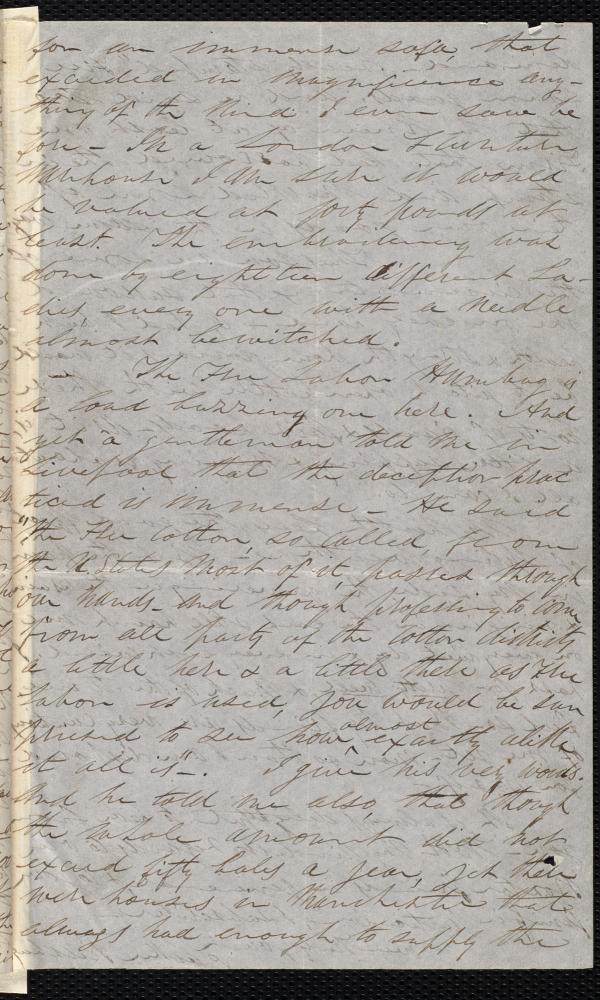 for an immense sofa, that
exceeded in magnificence any-
thing of the kind I ever saw be
fore - In a London Furniture
Warehouse I am sure it would
be valued at forty pounds at
least. The embroidery was
done by eighteen different La-
dies, every one with a needle
almost bewitched.
- The Free Labor Humbug is
a loud buzzing one here. And
yet a gentleman told me in
Liverpool that the deception prac
ticed is immense - He said
"the Free Cotton, so called, from
the U States most of it, passes through
our hands - and though professing to come
from all parts of the cotton districts
a little here & a little there as Free
Labor is used, you would be sur
prised to see how almost exactly alike
it all is" -. I give his very words.
And he told me also, that though
the whole amount did not
exceed fifty bales a year, yet there
were houses in Manchester that
always had enough to supply the